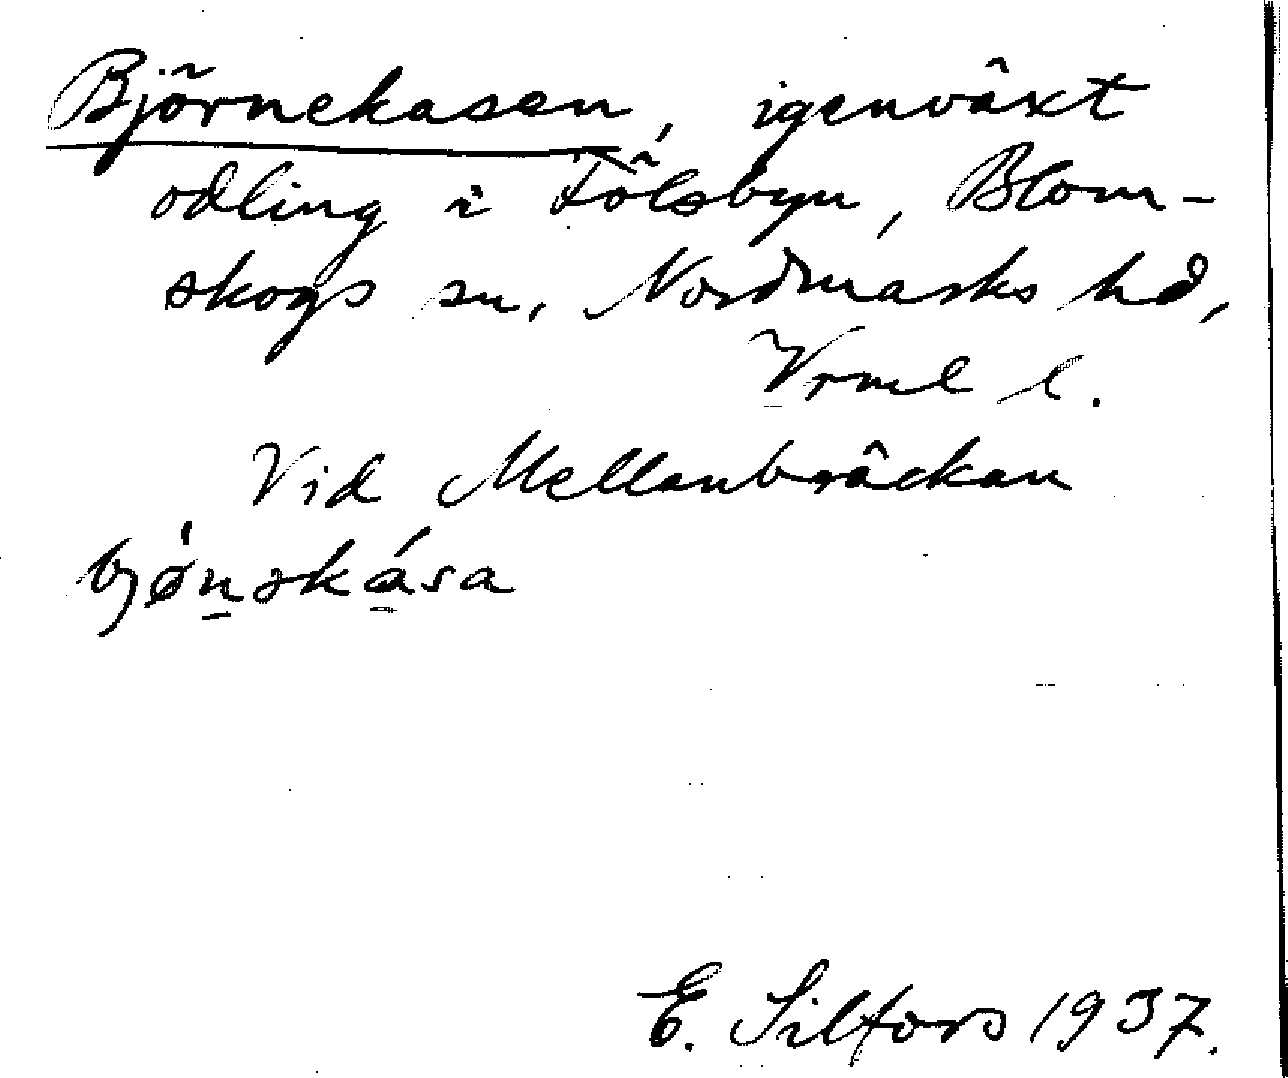 Björnekasen, igenväxt
odling i Fölsbyn, Blom-
skogs sn, Nordmarks hd,
Vrml l.
Vid Mellanbräckan
bjø̀n̲skása
E. Silfors 1937.